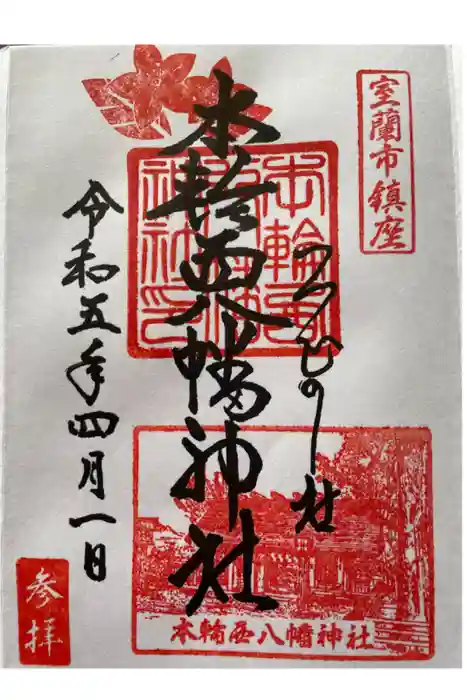 室蘭市鎮座
つつじの社
本輪西八幡神社
令和五年四月一日
参拝
本輪西八幡神社